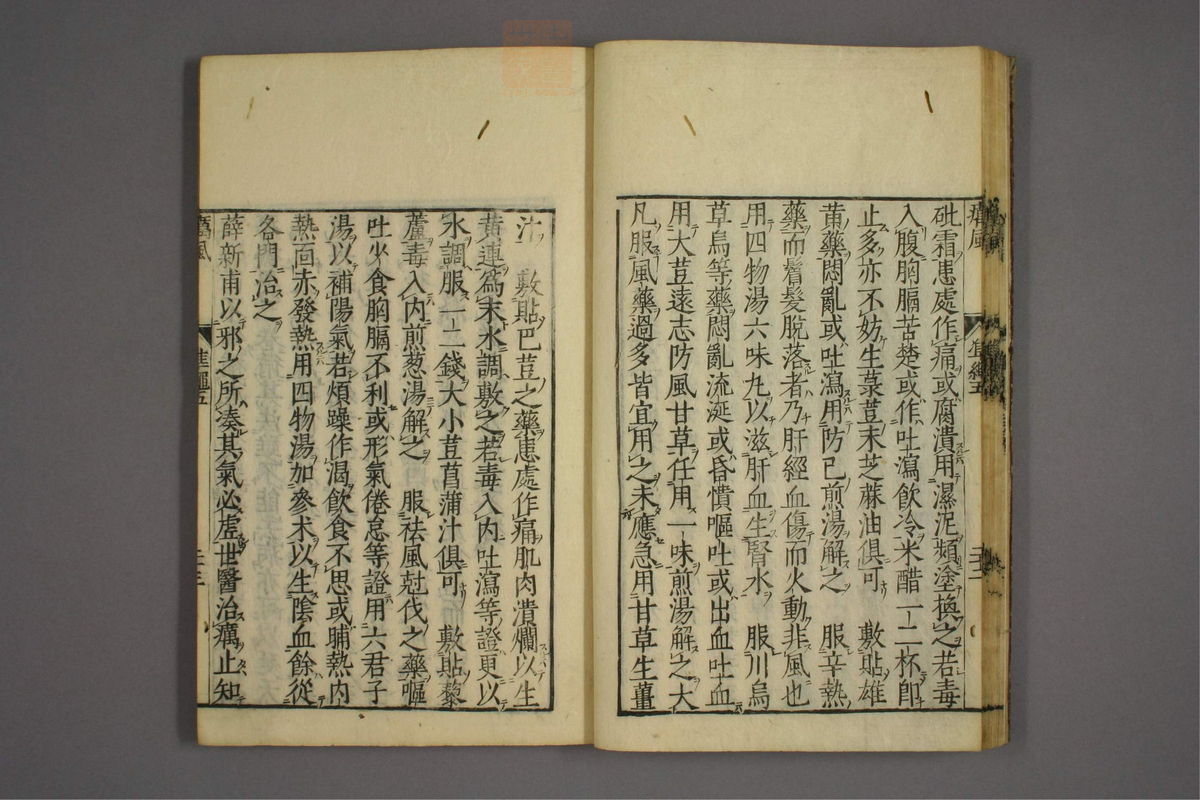 癘風
砒霜患處作痛或腐潰用濕泥頻塗換之若毒
入腹胸膈苦楚或作吐瀉飲冷米醋一二杯卽
止多亦不妨生菉荳末芝蔴油俱可　敷貼雄
黄藥悶亂或吐瀉用防已煎湯解之　服辛熱
藥而眉髮脫落者乃肝經血傷而火動非風也
用四物湯六味丸以滋肝血生腎水　服川烏
草烏等藥悶亂流涎或昏憒嘔吐或出血吐血
用大荳遠志防風甘草任用一味煎湯解之大
凡服風藥過多皆宜用之未應急用甘草生薑
汁　敷貼巴荳之藥患處作痛肌肉潰爛以生
黄連爲末水調敷之若毒入内吐瀉等證更以
水調服一二錢大小荳菖蒲汁俱可　敷貼藜
蘆毒入内煎葱湯解之　服祛風尅伐之藥嘔
吐少食胸膈不利或形氣倦怠等證用六君子
湯以補陽氣若煩躁作渴飲食不思或晡熱内
熱面赤發熱用四物湯加參术以生陰血餘從
各門治之
薛新甫以邪之所湊其氣必虛世醫治癘止知